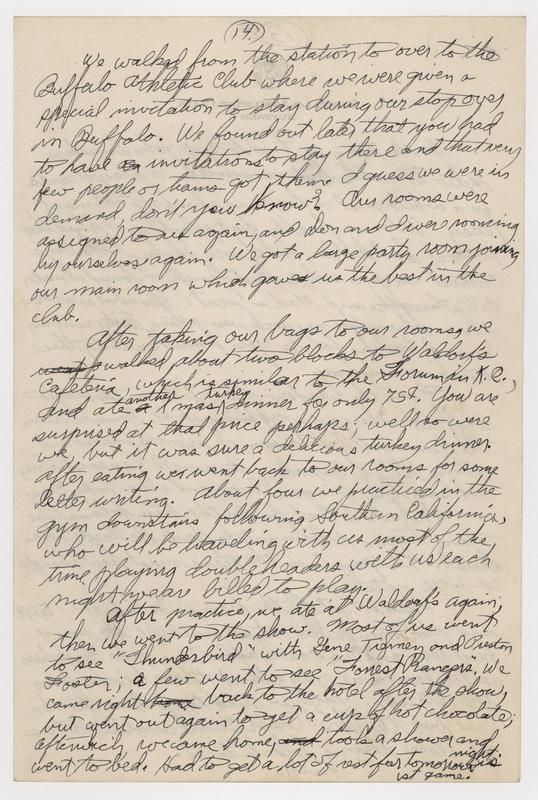 14.
We walked from the station to over to the
Buffalo Athletic Club where we were given a
special invitation to stay during our stop over
in Buffalo. We found out later that you had
to have an invitations to stay there and that very
few people or teams got them. I guess we were in
demand, don't you know? Our rooms were
assigned to us again, and Don and I were rooming
by ourselves again. We got a large party room joining
our main room which gave us the best in the
club.
After taking our bags to our rooms, we
went walked about two blocks to Waldorf's
Cafeteria, which is similar to the Forum in K.C.,
and ate a another Xmas turkey dinner for only 75¢. You are
surprised at that price perhaps; well so were
we, but it was sure a delicious turkey dinner.
After eating we went back to our rooms for some
letter writing. About four we practiced in the
gym downstairs following Southern California,
who will be traveling with us most of the
time playing double headers with us each
night we are billed to play.
After practice, we ate at Waldorf's again;
then we went to the show. Most of us went
to see "Thunderbird" with Gene Tierney and Preston
Foster; a few went to see "Forest Rangers." We
came right home back to the hotel after the show,
but went out again to get a cup of hot chocolate;
afterwich, we came home, and took a shower and
went to bed. Had to get a lot of rest for tomorrow night's
1st game.